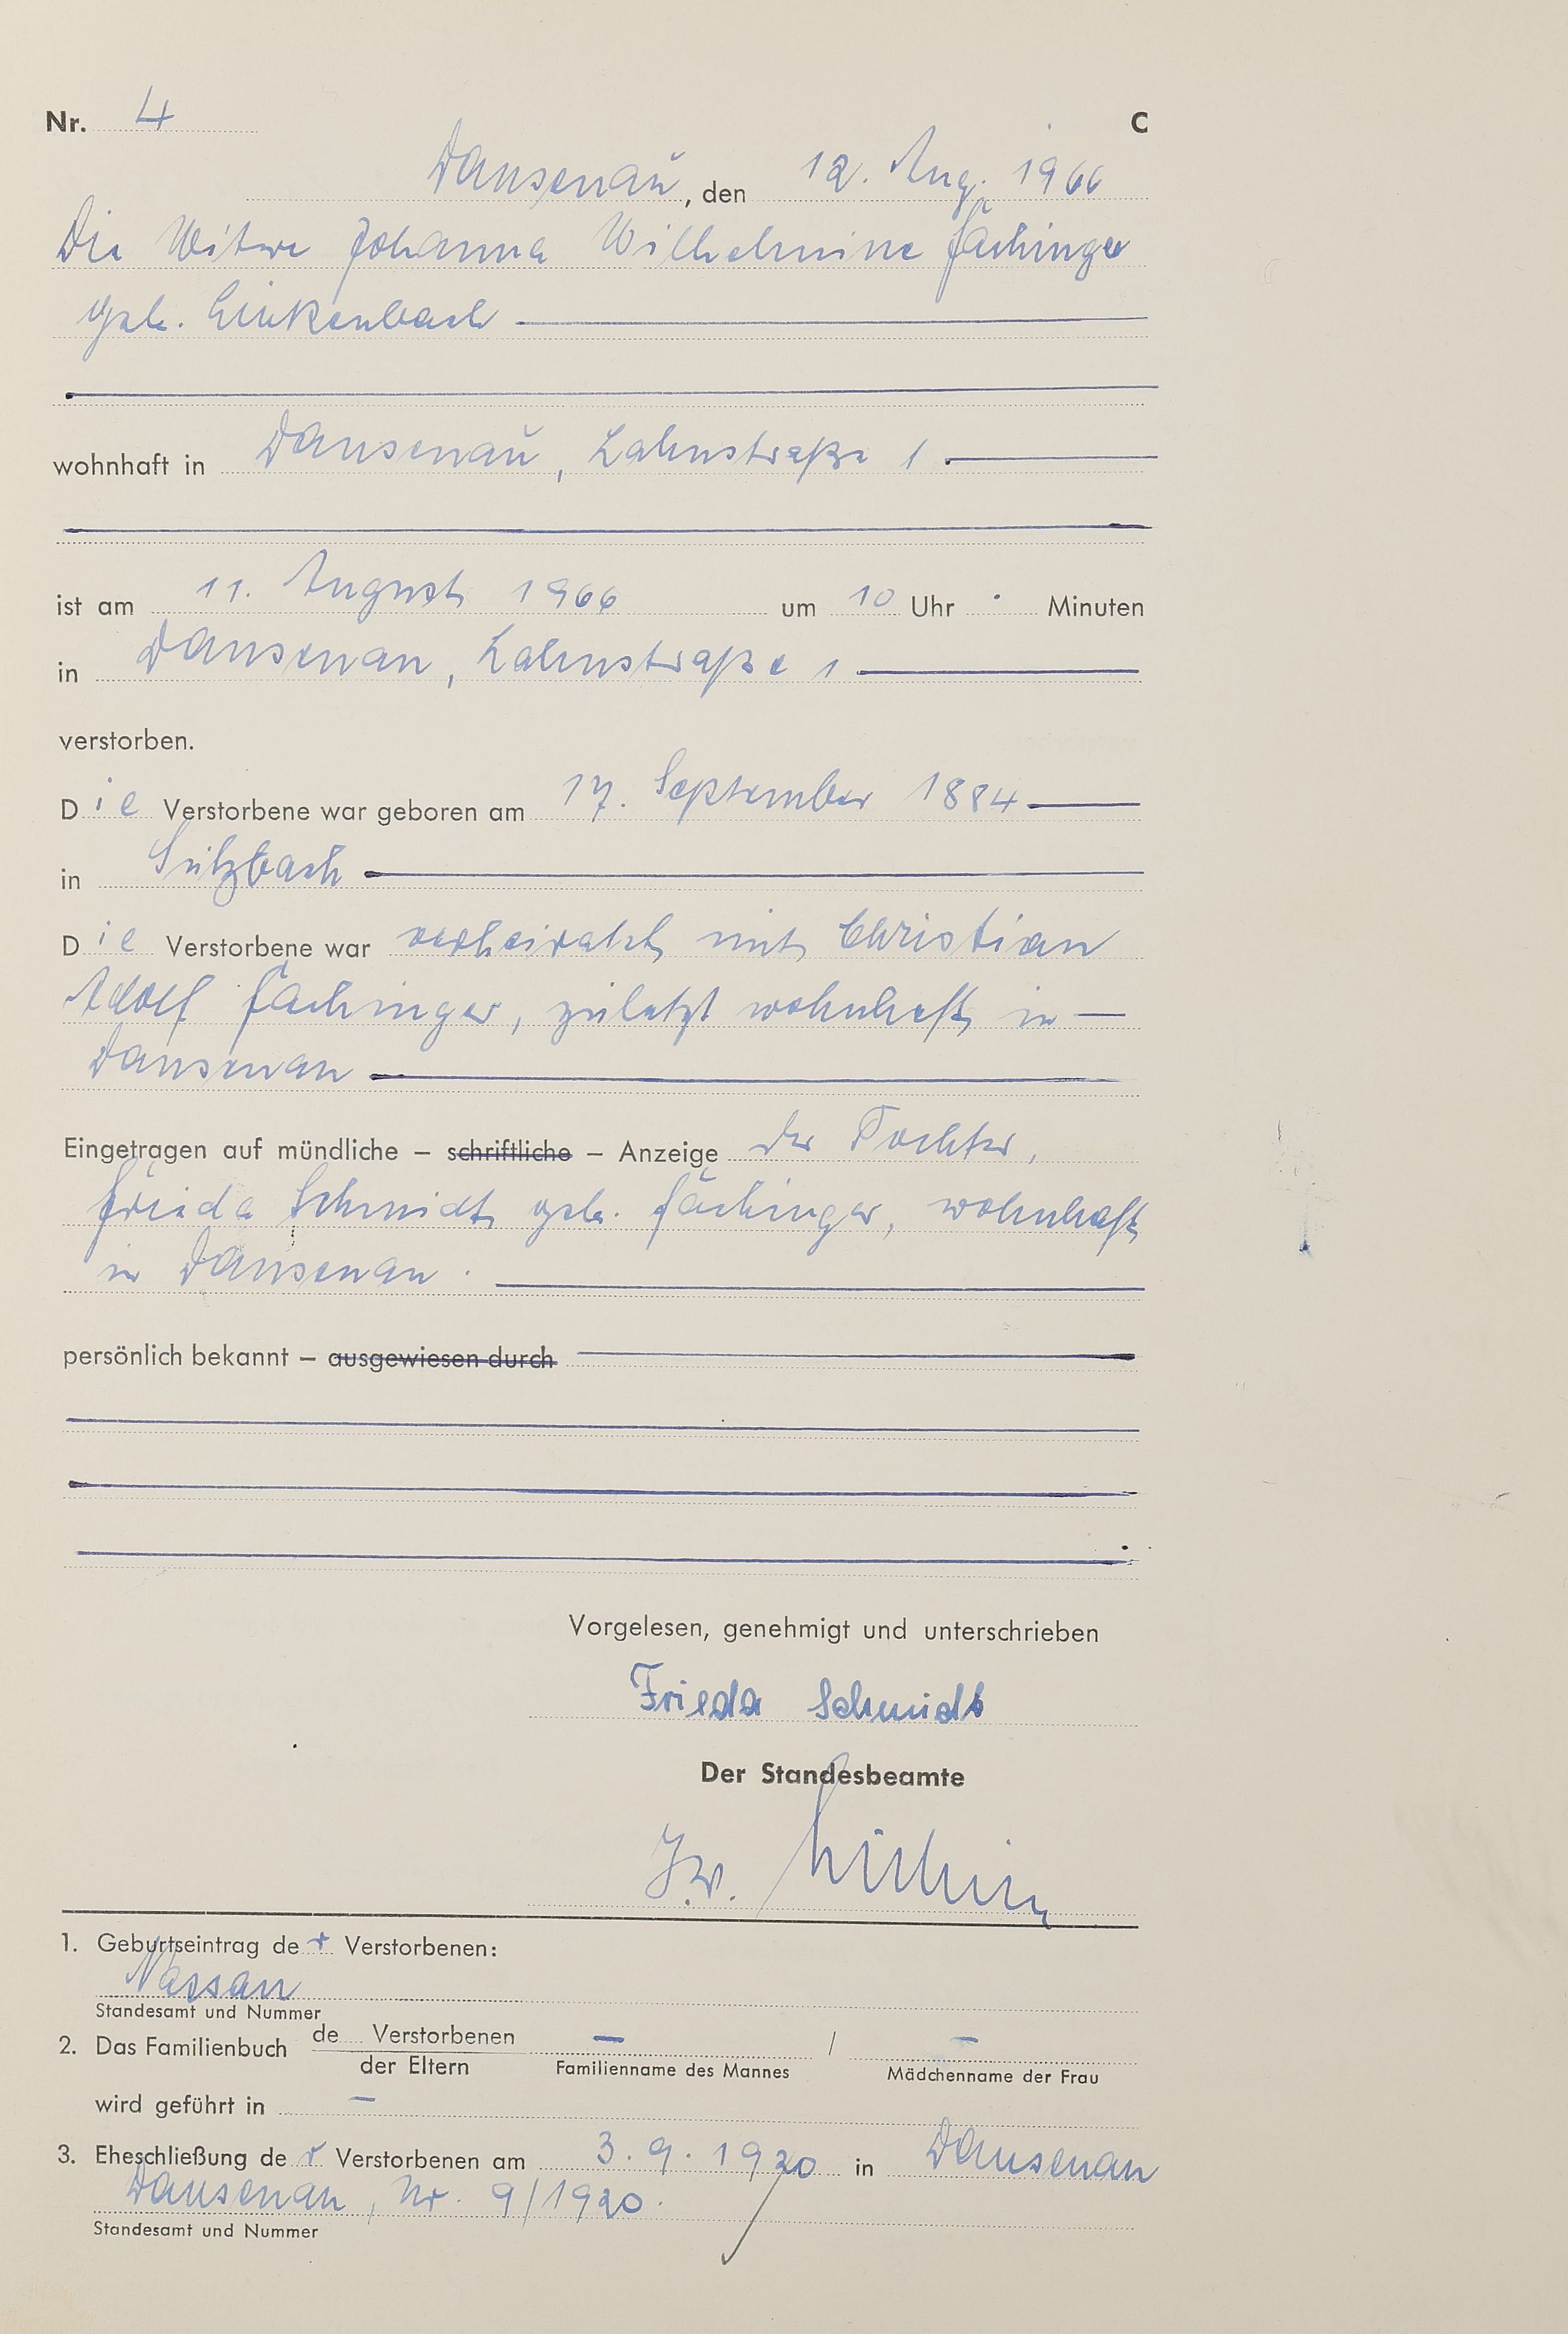 Nr. 4 C
Dausenau, den 12. Aug. 1966
Die Witwe Johanna Wilhelmine Fachinger
geb. Linkenbach
wohnhaft in Dausenau, Lahnstraße 1
ist am 11. August 1966 um 10 Uhr - Minuten
in Dausenau, Lahnstraße 1
verstorben.
Die Verstorbene war geboren am 17. September 1884
in Sulzbach
Die Verstorbene war verheiratet mit Christian
Adolf Fachinger, zuletzt wohnhaft in
Dausenau
Eingetragen auf mündliche – schriftliche – Anzeige der Tochter,
Frieda Schmidt geb. Fachinger, wohnhaft
in Dausenau.
persönlich bekannt – ausgewiesen durch
Vorgelesen, genehmigt und unterschrieben
Frieda Schmidt
Der Standesbeamte
1. Geburtseintrag der Verstorbenen:
Nassau
Standesamt und Nummer
2. Das Familienbuch de Verstorbenen – / –
der Eltern Familienname des Mannes Mädchenname der Frau
wird geführt in –
3. Eheschließung der Verstorbenen am 3.9.1920 in Dausenau
Dausenau, Nr. 9/1920.
Standesamt und Nummer